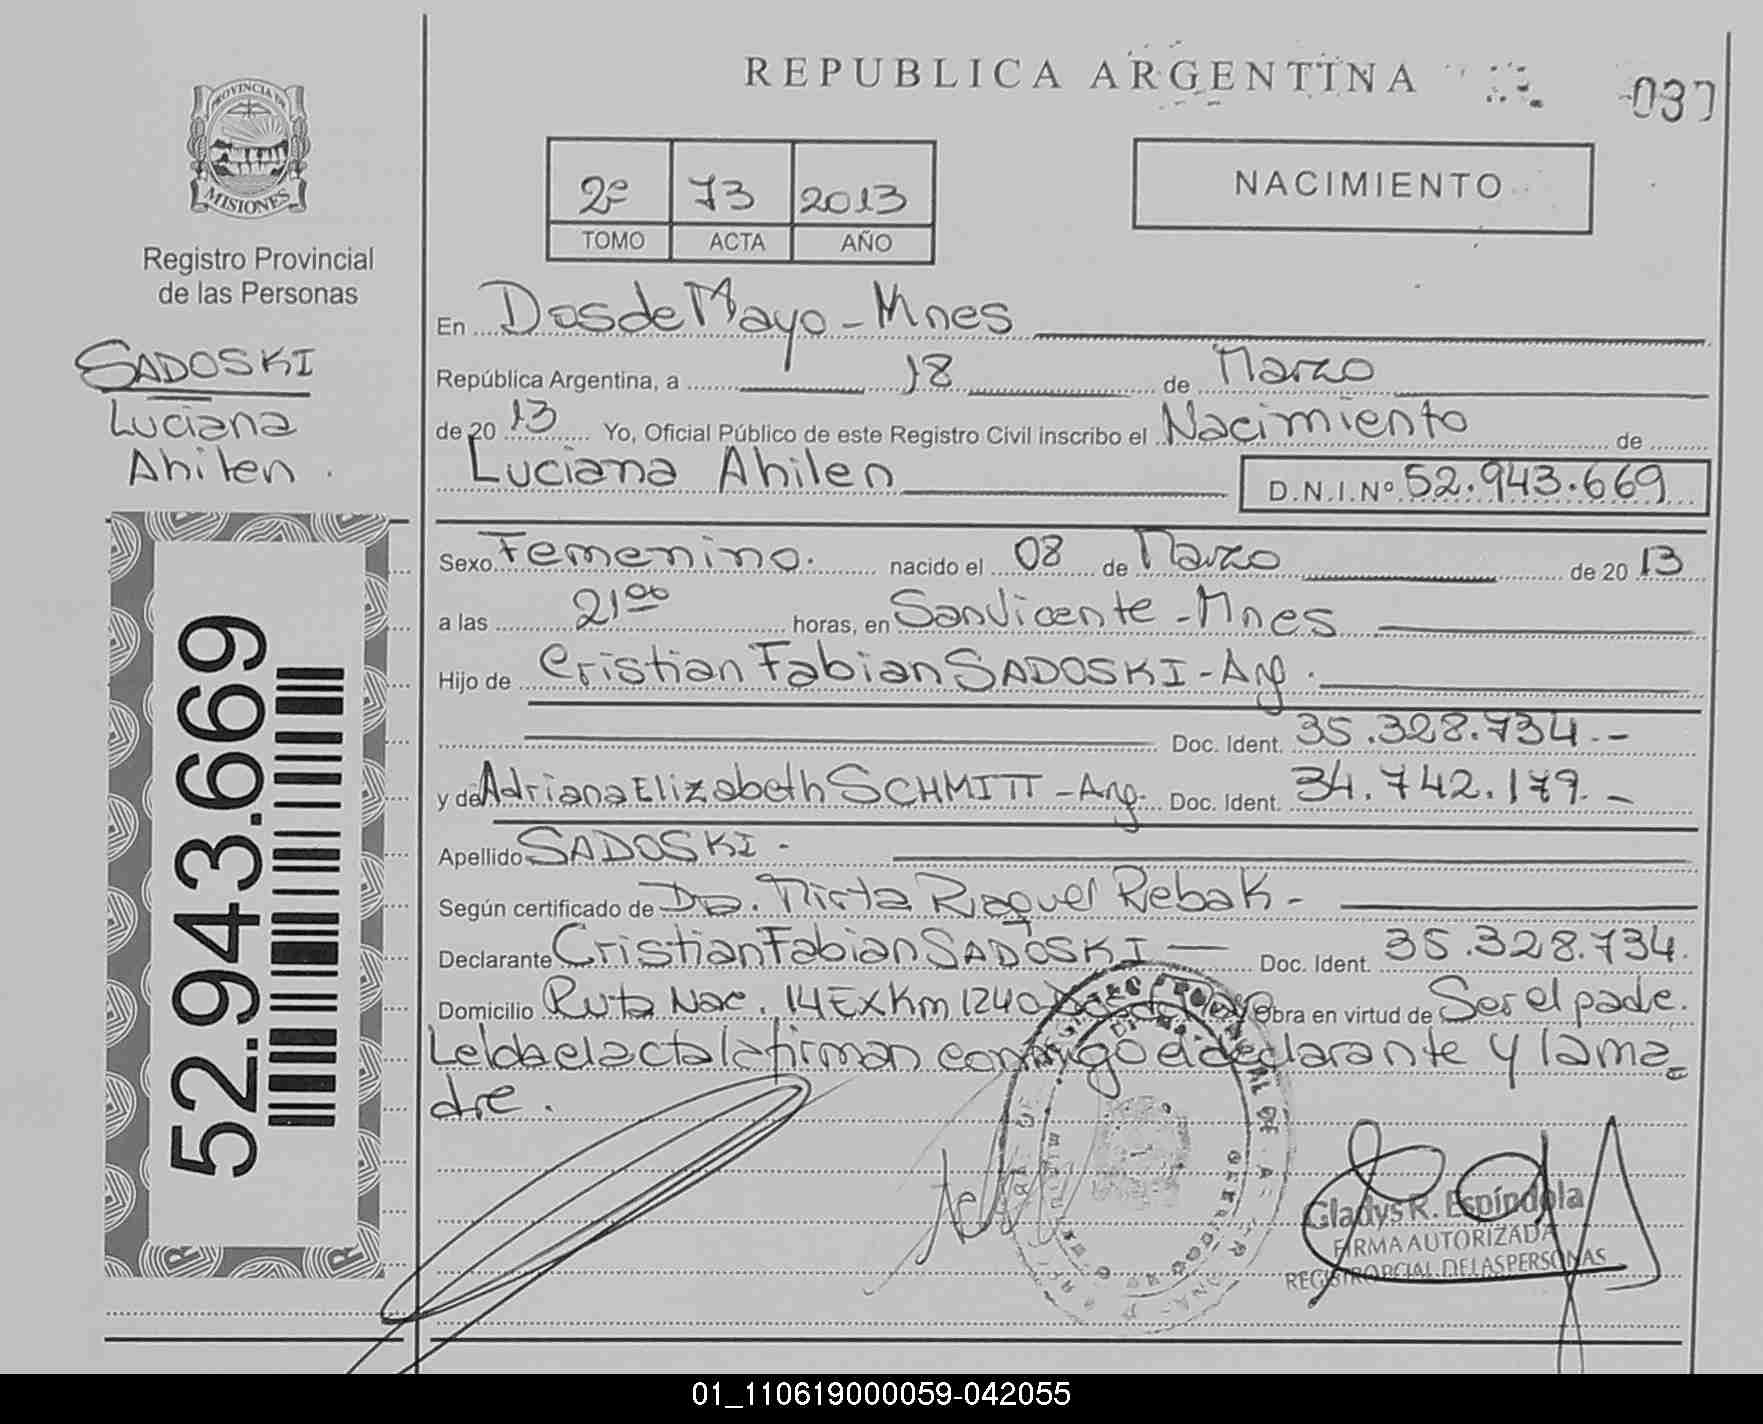 REPUBLICA ARGENTINA
037
PROVINCIA DE
MISIONES
Registro Provincial
de las Personas
SADOSKI
Luciana
Ahilen.
52.943.669
2º 73 2013
TOMO ACTA AÑO
NACIMIENTO
En Dos de Mayo - Mnes
República Argentina, a 18 de Marzo
de 20 13 Yo, Oficial Público de este Registro Civil inscribo el Nacimiento de
Luciana Ahilen D.N.I.Nº 52.943.669
Sexo Femenino. nacido el 08 de Marzo de 20 13
a las 21 00 horas, en San Vicente - Mnes
Hijo de Cristian Fabian SADOSKI - Arg.
Doc. Ident. 35.328.734.-
y de Adriana Elizabeth SCHMITT - Arg. Doc. Ident. 34.742.179.-
Apellido SADOSKI -
Según certificado de Dra. Mirta Raquel Rebak -
Declarante Cristian Fabian SADOSKI — Doc. Ident. 35.328.734.
Domicilio Ruta Nac. 14 Ex Km 1240 Obra en virtud de Ser el padre.
Leida el acta la firman conmigo el declarante y la ma-
dre.
Gladys R. Espíndola
FIRMA AUTORIZADA
REGISTRO PCIAL DE LAS PERSONAS
01_110619000059-042055